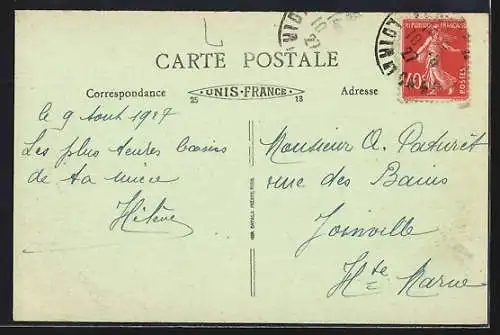 CARTE POSTALE
Correspondance
UNIS-FRANCE
25
13
Adresse
RÉPUBLIQUE FRANÇAISE
40c
POSTES
le 9 Aout 1927
Les plus tendres baisers
de ta nièce
Hélène
Monsieur A. Paturet
rue des Bains
Joinville
Hte Marne